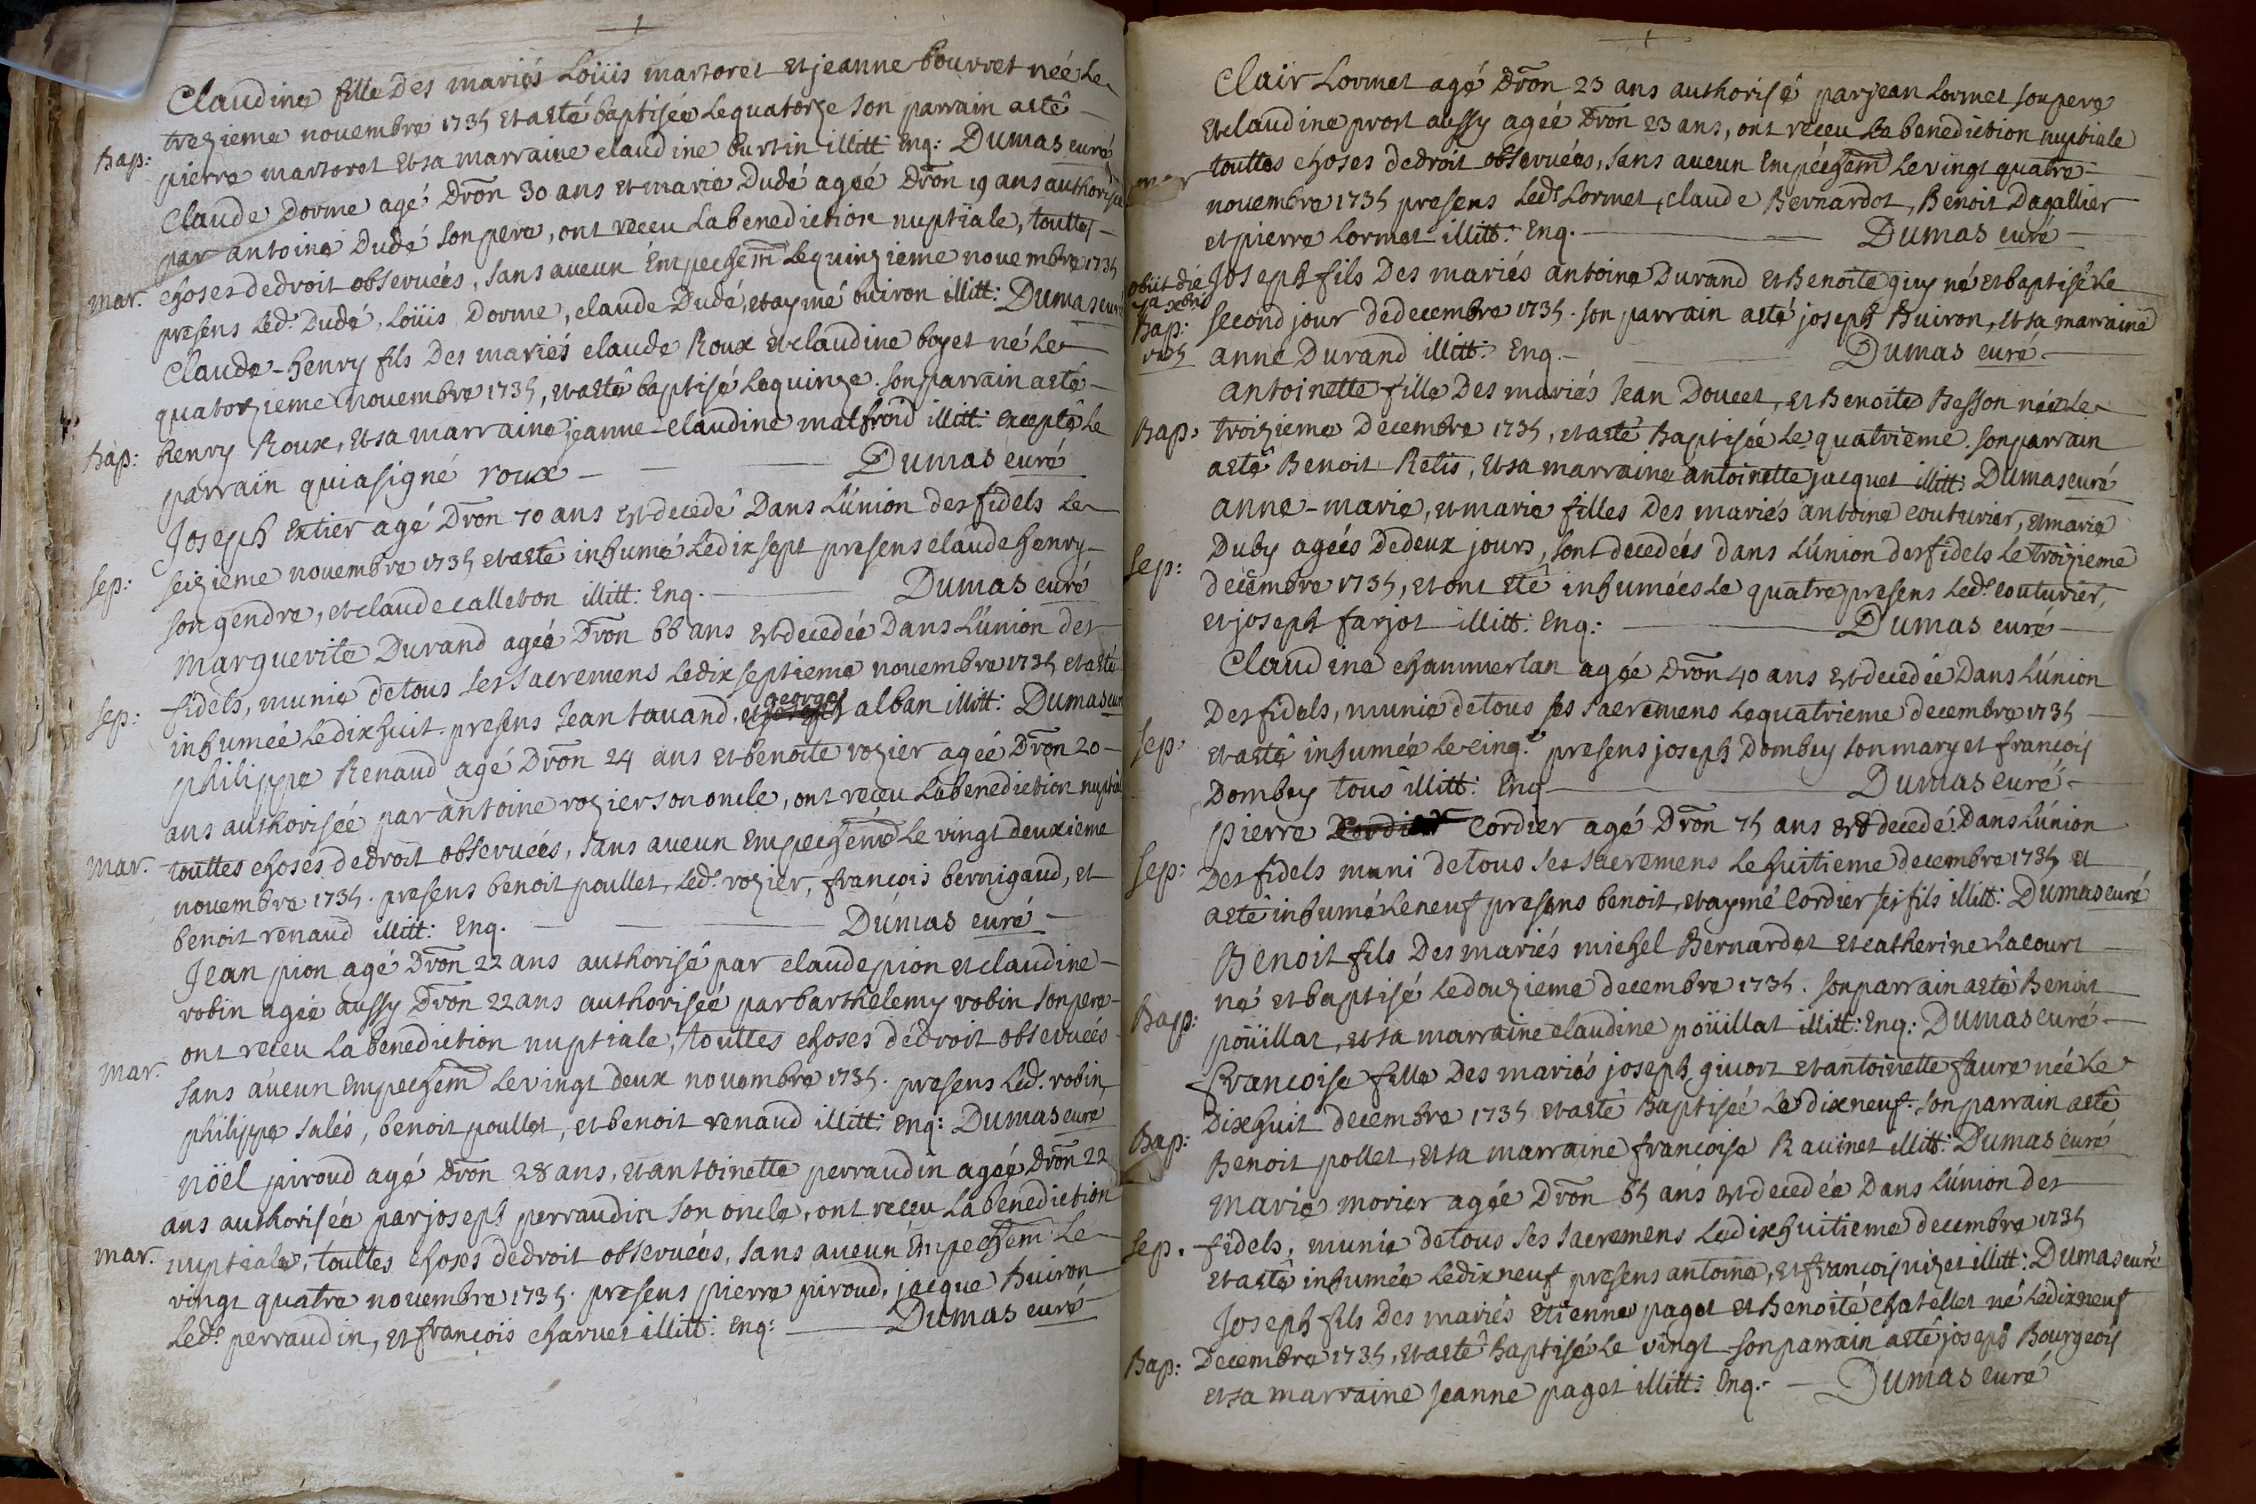 Claudine fille Des mariés Loüis martoret et jeanne bourret née Le
trezieme novembre 1735 et a eté baptisée Le quatorze son parrain a eté
bap: pierre martoret et sa marraine claudine burtin illitt: Enq: Dumas curé
Claude Dorme agé D'ron 30 ans et marie Dudé agée D'ron 19 ans authorisée
par antoine Dudé son pere, ont receu La benediction nuptiale, touttes
mar. choses de droit observées, sans aucun Empechem Le quinzieme novembre 1735
presens Led. Dudé, Loüis Dorme, claude Dudé, et aymé buiron illitt: Dumas curé
Claude-henry fils Des mariés claude Roux et claudine boyet né Le
quatorzieme novembre 1735, et a eté baptisé Le quinze. son parrain a eté
bap: henry Roux, et sa marraine jeanne-claudine malfroid illitt: excepté Le
parrain qui a signé roux Dumas curé
Joseph Extier agé D'ron 70 ans est decedé Dans L'union des fidels Le
sep: seizieme novembre 1735 et a eté inhumé Le dix sept presens claude henry
son gendre, et claude calleton illitt: Enq. Dumas curé
Marguerite Durand agée D'ron 66 ans est decedée Dans L'union des
sep: fidels, munie de tous ses sacremens Le dix septieme novembre 1735 et a eté
inhumée Le dix huit. presens Jean tavand, et george alban illitt: Dumas curé
philippe Renaud agé D'ron 24 ans et benoite rozier agée D'ron 20
ans authorisée par antoine rozier son oncle, ont receu La benediction nuptiale
mar. touttes choses de droit observées, sans aucun Empechem Le vingt deuxieme
novembre 1735. presens benoit poullet, Led. rozier, françois bernigaud, et
benoit renaud illitt: Enq. Dumas curé
Jean pion agé D'ron 22 ans authorisé par claude pion et claudine
robin agée aussy D'ron 22 ans authorisée par barthelemy robin son pere
ont receu La benediction nuptiale, touttes choses de droit observées
mar. sans aucun Empechem Le vingt deux novembre 1735. presens Led. robin,
philippe salés, benoit poullet, et benoit renaud illitt: Enq: Dumas curé
noël piroud agé D'ron 28 ans, et antoinette perraudin agée D'ron 22
ans authorisée par joseph perraudin son oncle, ont receu La benediction
mar. nuptiale, touttes choses de droit observées, sans aucun Empechem Le
vingt quatre novembre 1735. presens pierre piroud, jacque buiron
Led. perraudin, et françois charvet illitt: Enq: Dumas curé
Clair Lormet agé D'ron 23 ans authorisé par jean Lormet son pere
et claudine prost aussy agée D'ron 23 ans, ont receu La benediction nuptiale
mar touttes choses de droit observées, sans aucun Empechem Le vingt quatre
novembre 1735 presens Led. Lormet, claude Bernardot, Benoit Dagallier
et pierre Lormet illitt: Enq. Dumas curé
obiit die
Joseph fils Des mariés antoine Durand et Benoite guy né et baptisé Le
bap: second jour de decembre 1735. son parrain a eté joseph Buiron, et sa marraine
1735 anne Durand illitt: Enq. Dumas curé
antoinette fille Des mariés Jean Doucet, et Benoite Besson née Le
Bap: troizieme Decembre 1735, et a eté Baptisée Le quatrieme. son parrain
a eté Benoit Retis, et sa marraine antoinette jacquet illitt: Dumas curé
anne-marie, et marie filles Des mariés antoine couturier, et marie
sep: Duby agées de deux jours, sont decedées dans L'union des fidels Le troizieme
decembre 1735, et ont eté inhumées Le quatre presens Led. couturier,
et joseph farjot illitt: Enq: Dumas curé
Claudine chammerlan agée D'ron 40 ans est decedée Dans L'union
Des fidels, munie de tous ses sacremens Le quatrieme decembre 1735
sep: et a eté inhumée Le cinq. presens joseph Dombey son mary et françois
Dombey tous illitt: Enq Dumas curé
pierre Cordier Cordier agé D'ron 75 ans est decedé Dans L'union
sep: Des fidels muni de tous ses sacremens Le huitieme decembre 1735 et
a eté inhumé Le neuf presens benoit, et aymé Cordier ses fils illitt: Dumas curé
Benoit fils Des mariés michel Bernardot et catherine Lacourt
né et baptisé Le douzieme decembre 1735. son parrain a eté Benoit
Bap: poüillat, et sa marraine claudine poüillat illitt: Enq.: Dumas curé
francoise fille Des mariés joseph givort et antoinette faure née Le
Dix huit decembre 1735 et a eté Baptisée Le dix neuf. son parrain a eté
Bap: Benoit pollet, et sa marraine francoise Ravinet illitt: Dumas curé
marie morier agée D'ron 65 ans est decedée Dans L'union des
sep. fidels, munie de tous ses sacremens Le dix huitieme decembre 1735
et a eté inhumée Le dix neuf presens antoine, et françois vizet illitt: Dumas curé
Joseph fils Des mariés Etienne paget et Benoite chatellet né Le dix neuf
Bap: Decembre 1735, et a eté Baptisé Le vingt son parrain a eté joseph Bourgeois
et sa marraine Jeanne paget illitt: Enq. Dumas curé